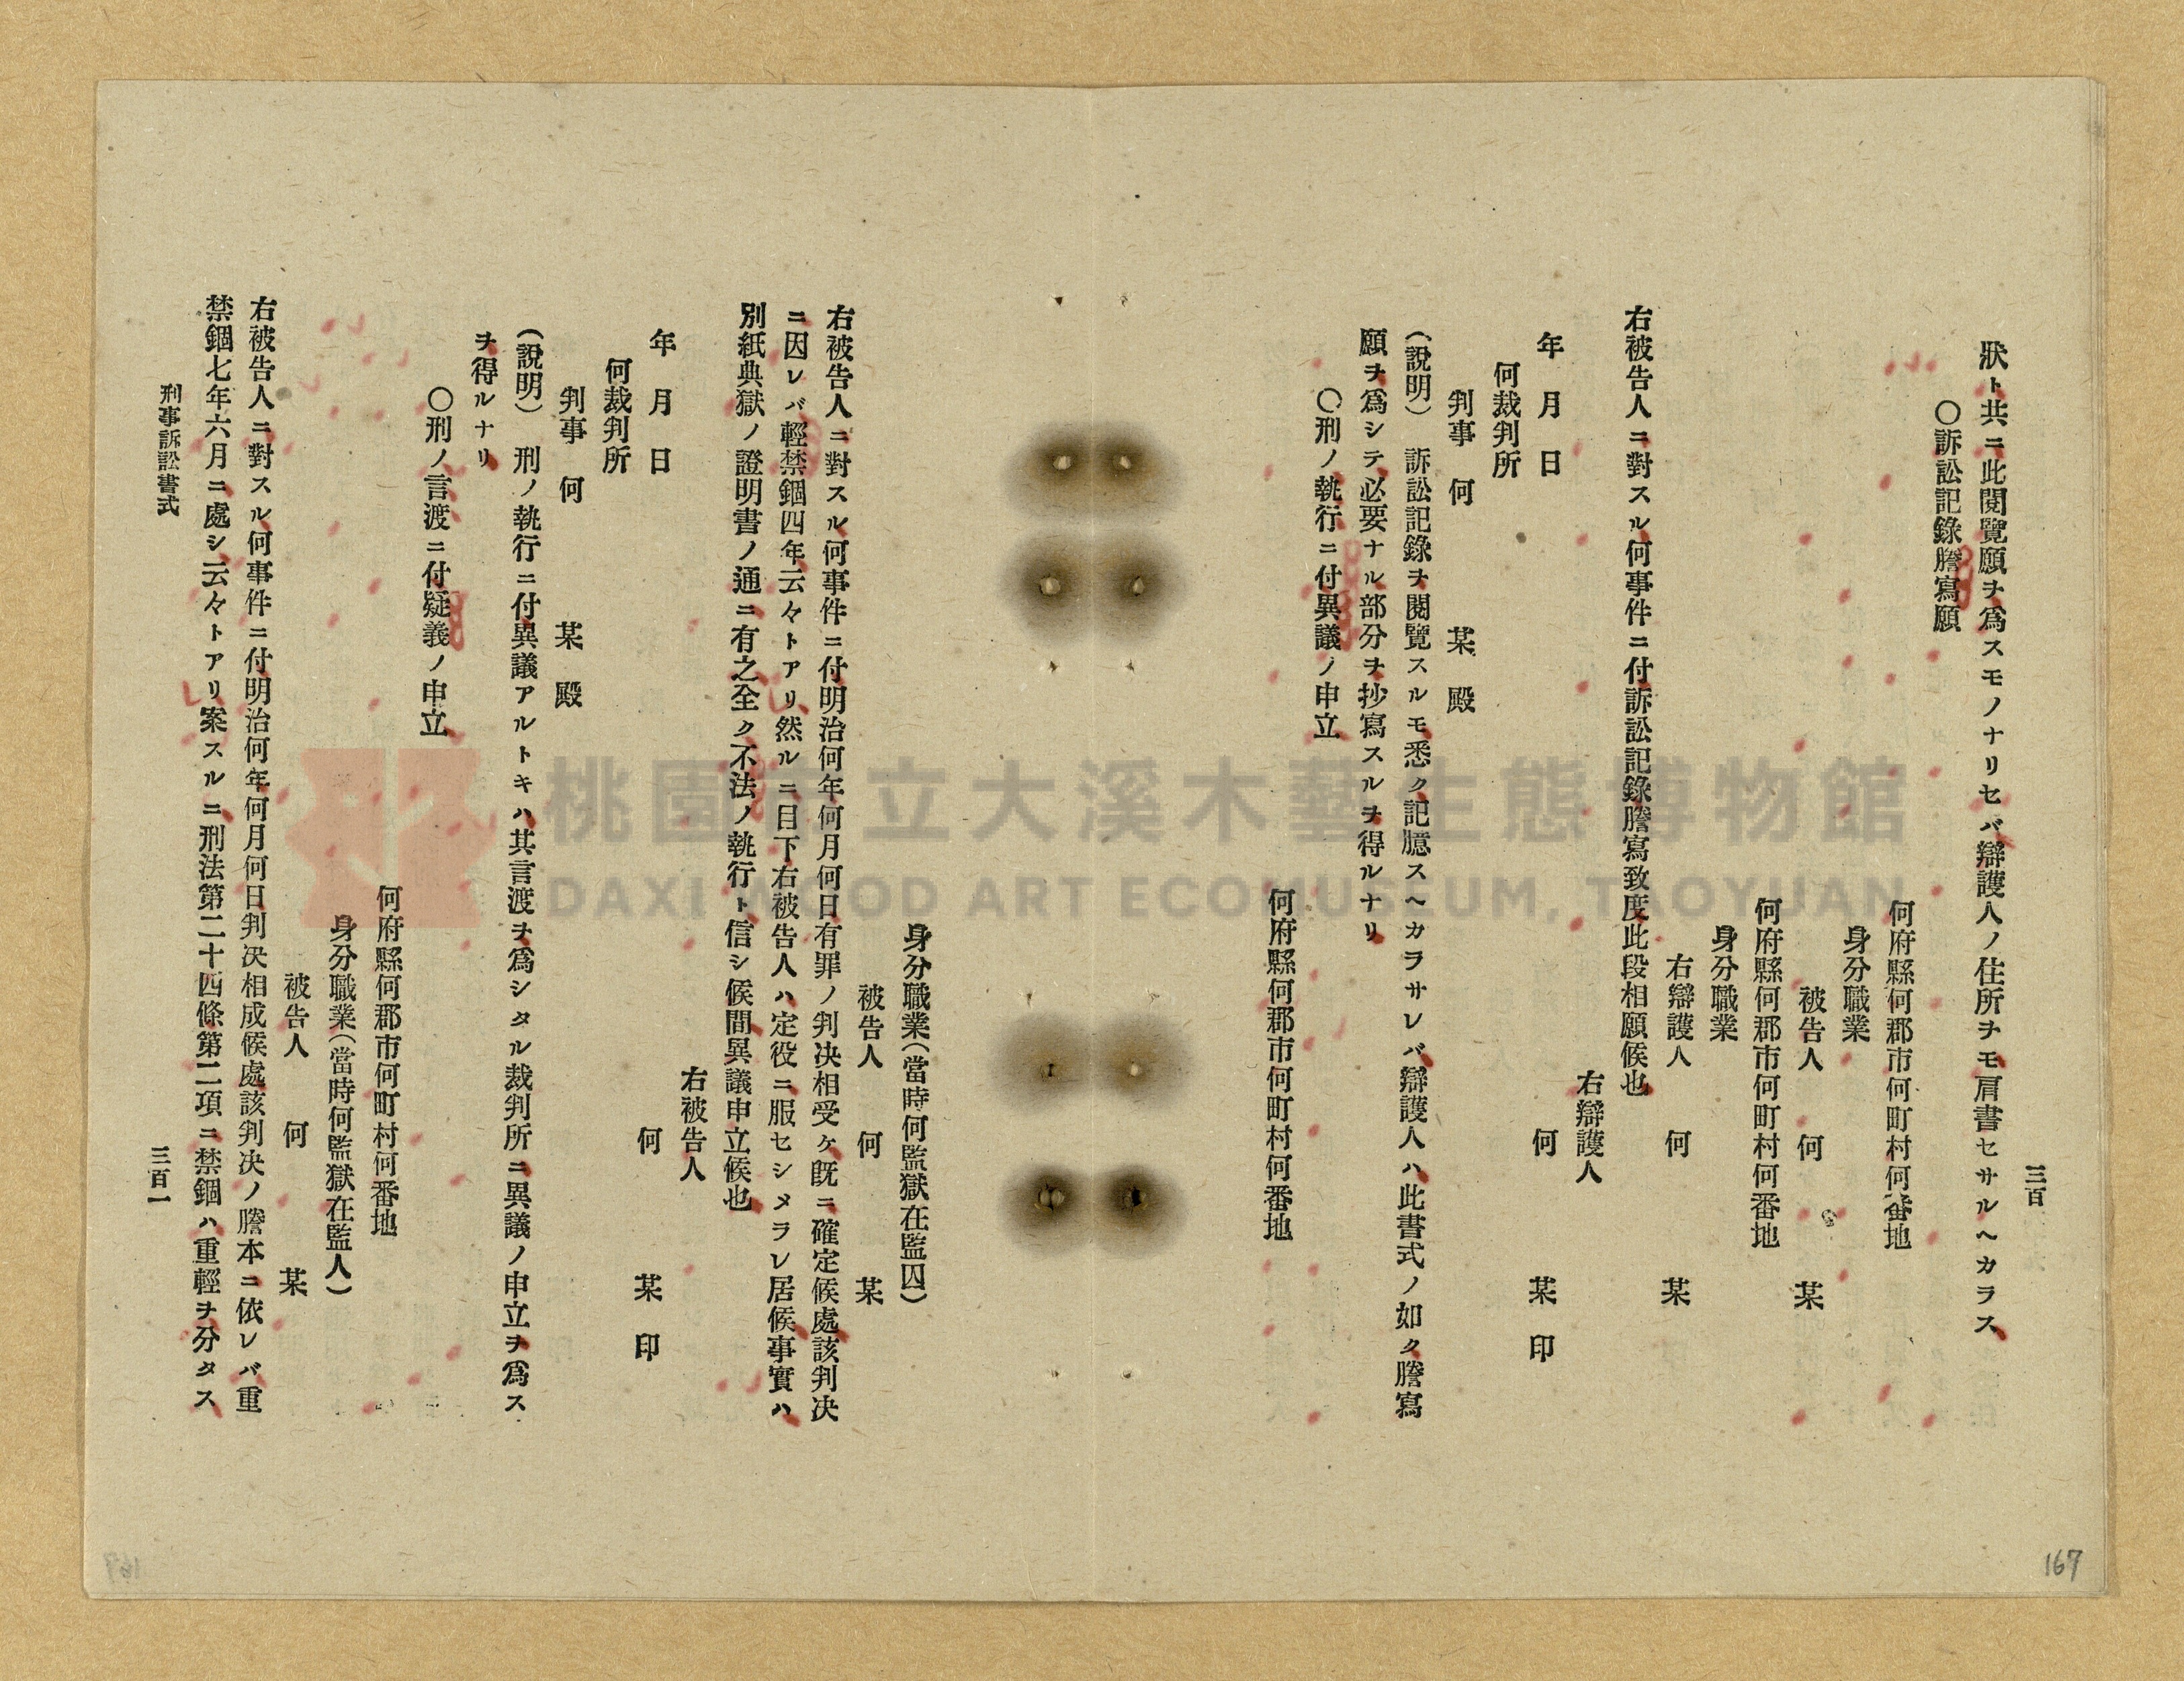 三百
狀ト共ニ此閱覽願ヲ爲スモノナリセバ辯護人ノ住所ヲモ肩書セサルヘカラス
〇訴訟記錄謄寫願
何府縣何郡市何町村何番地
身分職業
被告人 何 某
何府縣何郡市何町村何番地
身分職業
右辯護人 何 某
右被告人ニ對スル何事件ニ付訴訟記錄謄寫致度此段相願候也
右辯護人
年 月 日 何 某 印
何裁判所
判事 何 某 殿
(說明) 訴訟記錄ヲ閱覽スルモ悉ク記臆スヘカラサレバ辯護人ハ此書式ノ如ク謄寫
願ヲ爲シテ必要ナル部分ヲ抄寫スルヲ得ルナリ
〇刑ノ執行ニ付異議ノ申立
何府縣何郡市何町村何番地
身分職業(當時何監獄在監囚)
被告人 何 某
右被告人ニ對スル何事件ニ付明治何年何月何日有罪ノ判決相受ケ既ニ確定候處該判決
ニ因レバ輕禁錮四年云々トアリ然ルニ目下右被告人ハ定役ニ服セシメラレ居候事實ハ
別紙典獄ノ證明書ノ通ニ有之全ク不法ノ執行ト信シ候間異議申立候也
右被告人
年 月 日 何 某 印
何裁判所
判事 何 某 殿
(說明) 刑ノ執行ニ付異議アルトキハ其言渡ヲ爲シタル裁判所ニ異議ノ申立ヲ爲ス
ヲ得ルナリ
〇刑ノ言渡ニ付疑義ノ申立
何府縣何郡市何町村何番地
身分職業(當時何監獄在監人)
被告人 何 某
右被告人ニ對スル何事件ニ付明治何年何月何日判決相成候處該判決ノ謄本ニ依レバ重
禁錮七年六月ニ處シ云々トアリ案スルニ刑法第二十四條第二項ニ禁錮ハ重輕ヲ分タス
刑事訴訟書式
三百一
167
桃園市立大溪木藝生態博物館
DAXI WOOD ART ECOMUSEUM, TAOYUAN